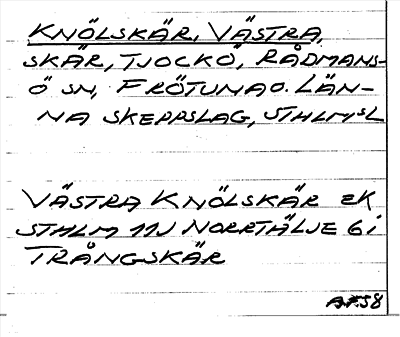 KNÖLSKÄR, VÄSTRA,
SKÄR, TJOCKÖ, RÅDMANS-
Ö SN, FRÖTUNA O. LÄN-
NA SKEPPSLAG, STHLMSL
VÄSTRA KNÖLSKÄR EK
STHLM 11J NORRTÄLJE 6i
TRÅNGSKÄR
A.F.58